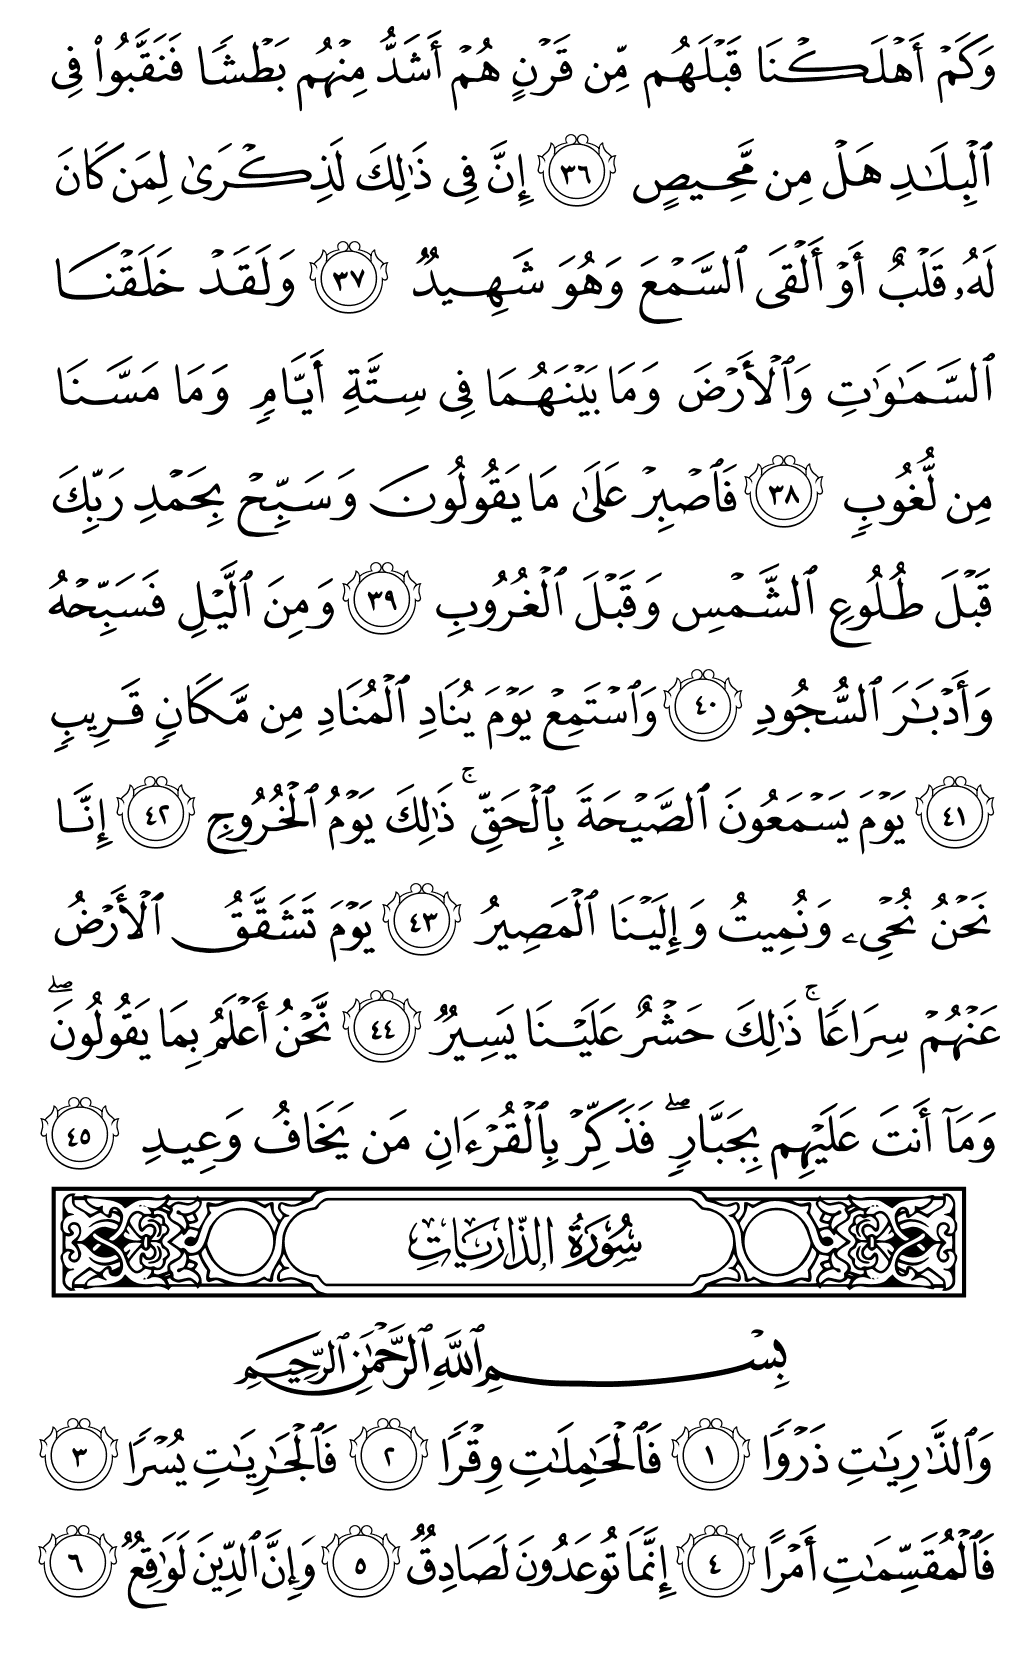 وَكَمْ أَهْلَكْنَا قَبْلَهُم مِّن قَرْنٍ هُمْ أَشَدُّ مِنْهُم بَطْشًا فَنَقَّبُوا۟ فِى
ٱلْبِلَـٰدِ هَلْ مِن مَّحِيصٍ ٣٦ إِنَّ فِى ذَٰلِكَ لَذِكْرَىٰ لِمَن كَانَ
لَهُۥ قَلْبٌ أَوْ أَلْقَى ٱلسَّمْعَ وَهُوَ شَهِيدٌ ٣٧ وَلَقَدْ خَلَقْنَا
ٱلسَّمَـٰوَٰتِ وَٱلْأَرْضَ وَمَا بَيْنَهُمَا فِى سِتَّةِ أَيَّامٍ وَمَا مَسَّنَا
مِن لُّغُوبٍ ٣٨ فَٱصْبِرْ عَلَىٰ مَا يَقُولُونَ وَسَبِّحْ بِحَمْدِ رَبِّكَ
قَبْلَ طُلُوعِ ٱلشَّمْسِ وَقَبْلَ ٱلْغُرُوبِ ٣٩ وَمِنَ ٱلَّيْلِ فَسَبِّحْهُ
وَأَدْبَـٰرَ ٱلسُّجُودِ ٤٠ وَٱسْتَمِعْ يَوْمَ يُنَادِ ٱلْمُنَادِ مِن مَّكَانٍ قَرِيبٍ
٤١ يَوْمَ يَسْمَعُونَ ٱلصَّيْحَةَ بِٱلْحَقِّ ۚ ذَٰلِكَ يَوْمُ ٱلْخُرُوجِ ٤٢ إِنَّا
نَحْنُ نُحْىِۦ وَنُمِيتُ وَإِلَيْنَا ٱلْمَصِيرُ ٤٣ يَوْمَ تَشَقَّقُ ٱلْأَرْضُ
عَنْهُمْ سِرَاعًا ۚ ذَٰلِكَ حَشْرٌ عَلَيْنَا يَسِيرٌ ٤٤ نَّحْنُ أَعْلَمُ بِمَا يَقُولُونَ ۖ
وَمَآ أَنتَ عَلَيْهِم بِجَبَّارٍ ۖ فَذَكِّرْ بِٱلْقُرْءَانِ مَن يَخَافُ وَعِيدِ ٤٥
سُورَةُ الذَّارِيَاتِ
بِسْمِ ٱللَّهِ ٱلرَّحْمَـٰنِ ٱلرَّحِيمِ
وَٱلذَّٰرِيَـٰتِ ذَرْوًا ١ فَٱلْحَـٰمِلَـٰتِ وِقْرًا ٢ فَٱلْجَـٰرِيَـٰتِ يُسْرًا ٣
فَٱلْمُقَسِّمَـٰتِ أَمْرًا ٤ إِنَّمَا تُوعَدُونَ لَصَادِقٌ ٥ وَإِنَّ ٱلدِّينَ لَوَٰقِعٌ ٦